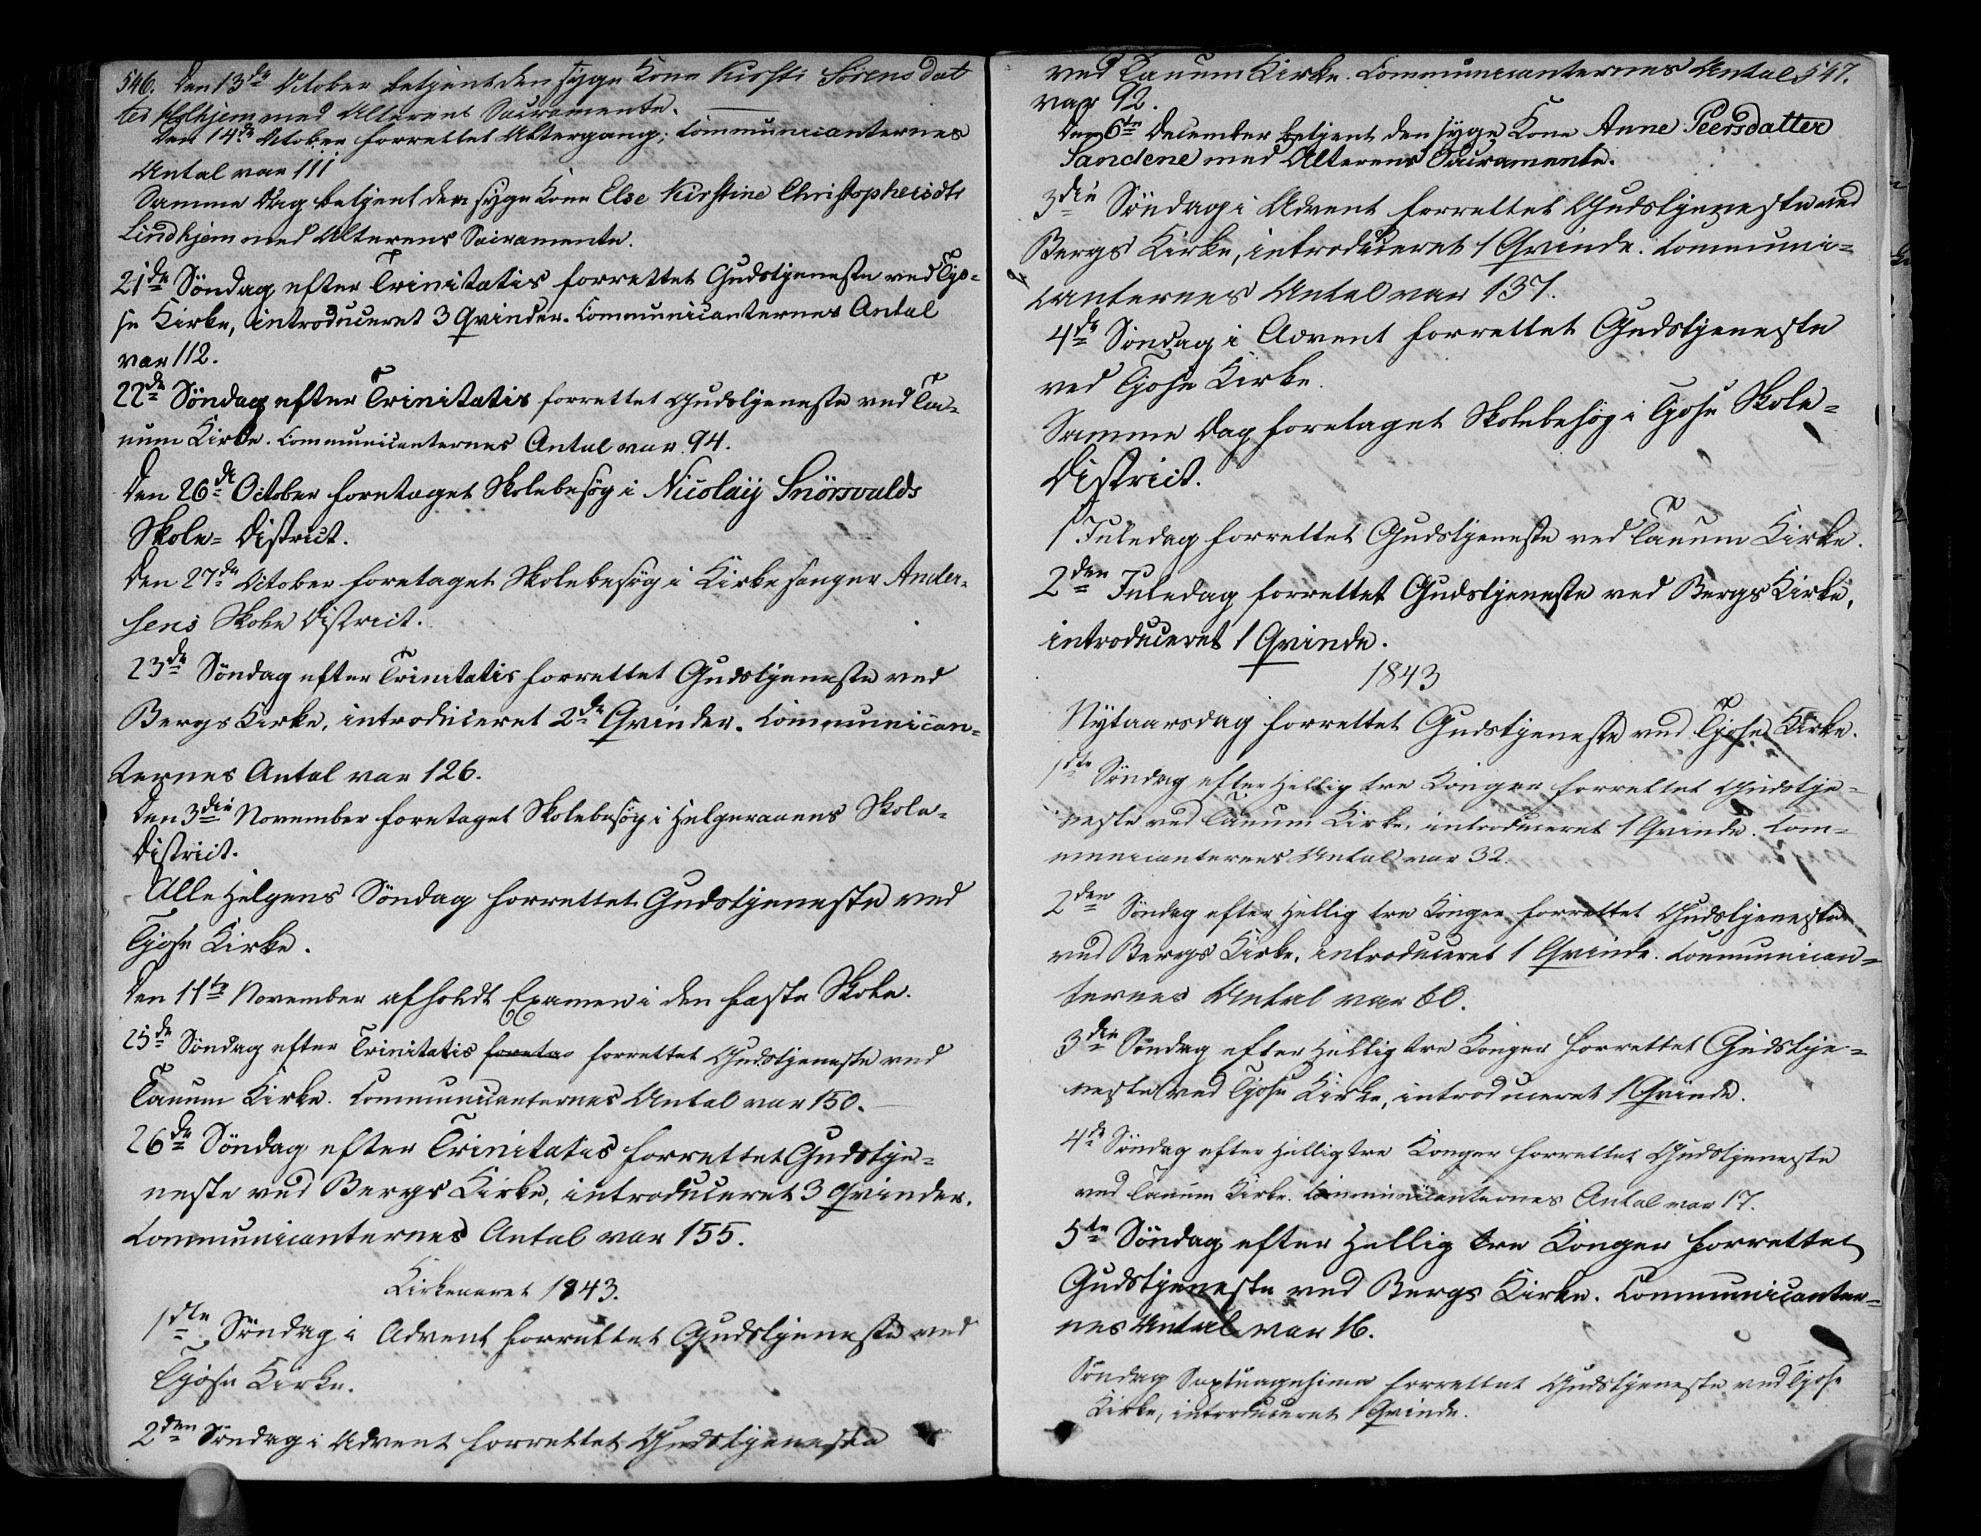 546. Den 13de October betjent den syge Kone Kirsti Sörensdat
ter Ahlhjem med Alterens Sacramente.
Den 14de October forrettet Altergang; Communicanternes
Antal var 111
Samme Dag betjent den syge Kone Else Kirstine Christophersdtr
Lindhjem med Alterens Sacramente.
21de Söndag efter Trinitatis forrettet Gudstjeneste ved Tjo-
se Kirke, introduceret 3 Qvinder. Communicanternes Antal
var 112.
22de Söndag efter Trinitatis forrettet Gudstjeneste ved Ta-
num Kirke. Communicanternes Antal var 94.
Den 26de October foretaget Skolebesög i Nicolaij Snörsvalds
Skole- District.
Den 27de October foretaget Skolebesög i Kirkesanger Ander-
sens Skole District.
23de Söndag efter Trinitatis forrettet Gudstjeneste ved
Bergs Kirke, introduceret 2de Qvinder. Communican-
ternes Antal var 126.
Den 3die November foretaget Skolebesög i Helgeraaens Skole-
District.
Alle Helgens Söndag forrettet Gudstjeneste ved
Tjose Kirke.
Den 11te November afholdt Examen i den faste Skole.
25de Söndag efter Trinitatis foretao forrettet Gudstjeneste ved
Tanum Kirke. Communicanternes Antal var 150.
26de Söndag efter Trinitatis forrettet Gudstje-
neste ved Bergs Kirke, introduceret 3 Qvinder.
Communicanternes Antal var 155.
Kirkeaaret 1843.
1ste Söndag i Advent forrettet Gudstjeneste ved
Tjose Kirke.
2den Söndag i Advent forrettet Gudstjeneste
ved Tanum Kirke. Communicanternes Antal 547.
var 92.
Den 6te December betjent den syge Kone Anne Peersdatter
Sandene med Alterens Sacramente.
3die Söndag i Advent forrettet Gudstjeneste ved
Bergs Kirke, introduceret 1 Qvinde. Communi-
canternes Antal var 137.
4de Söndag i Advent forrettet Gudstjeneste
ved Tjose Kirke.
Samme Dag foretaget Skolebesög i Tjose Skole-
District.
1 Juledag forrettet Gudstjeneste ved Tanum Kirke.
2den Juledag forrettet Gudstjeneste ved Bergs Kirke,
introduceret 1 Qvinde.
1843
Nytaarsdag forrettet Gudstjeneste ved Tjose Kirke.
1ste Söndag efter Hellig tre Konger forrettet Gudstje-
neste ved Tanum Kirke, introduceret 1 Qvinde. Com-
municanternes Antal var 32.
2den Söndag efter Hellig tre Konger forrettet Gudstjeneste
ved Bergs Kirke, introduceret 1 Qvinde. Communican-
ternes Antal var 60.
3die Söndag efter Hellig tre Konger forrettet Gudstje-
neste ved Tjose Kirke, introduceret 1 Qvinde.
4de Söndag efter Hellig tre Konger forrettet Gudstjeneste
ved Tanum Kirke. Communicanternes Antal var 17.
5te Söndag efter Hellig tre Konger forrettet
Gudstjeneste ved Bergs Kirke. Communicanter-
nes Antal var 16.
Söndag Septuagesima forrettet Gudstjeneste ved Tjose
Kirke, introduceret 1 Qvinde.